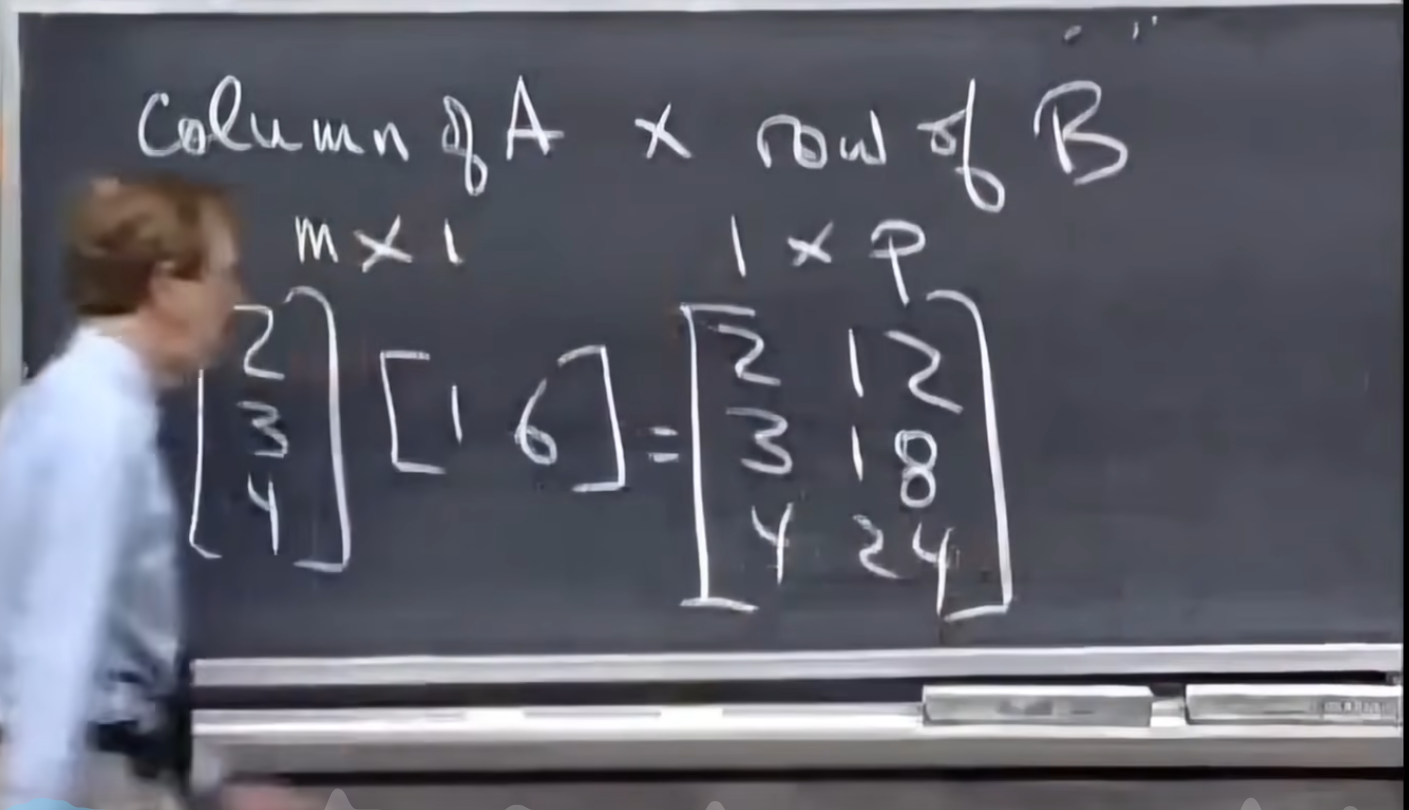 column of A × row of B
m × 1 1 × p
[2 3 4] [1 6] = [2 12
3 18
4 24]